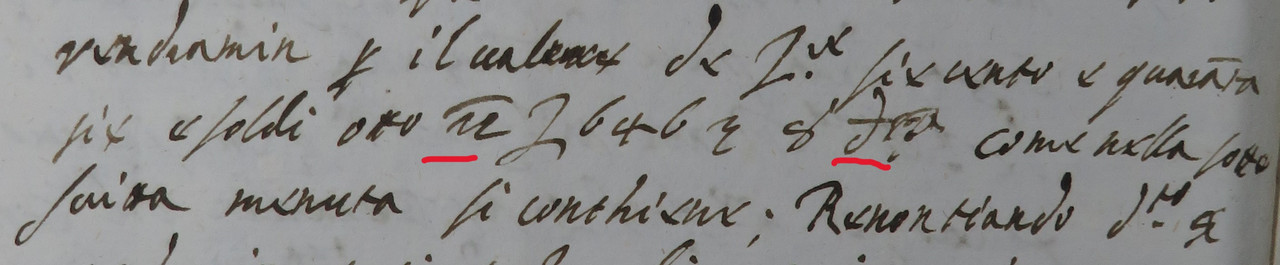 vendramin p il ualeuex de L.re sie cento e quarāta
sie e soldi otto L 646 : 8 come nella sotto
scrita menuta si conthiene; Renontiando d.to